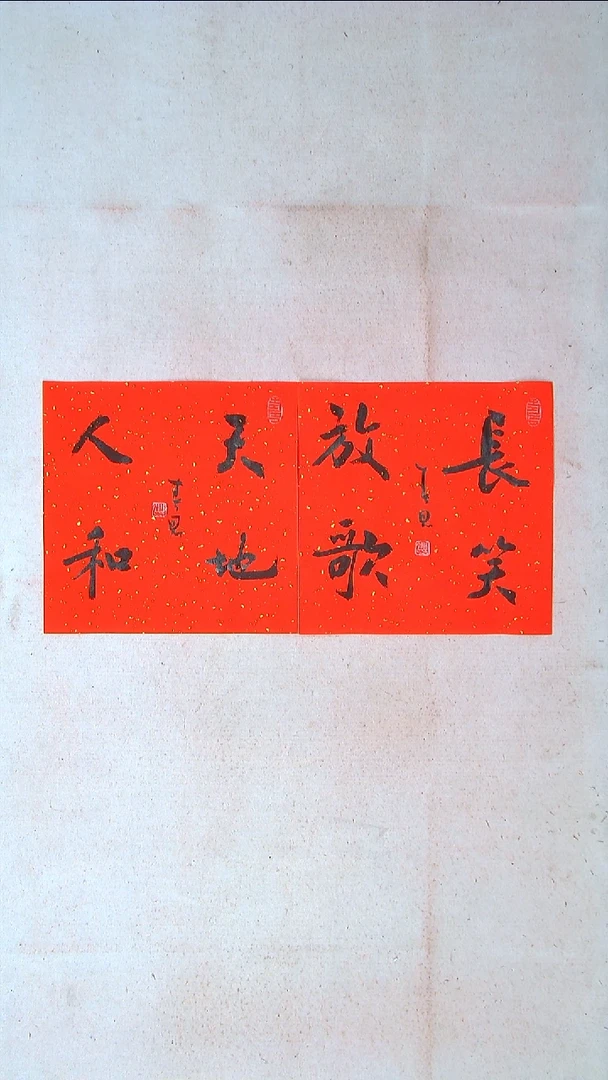 長笑
放歌
天地
人和